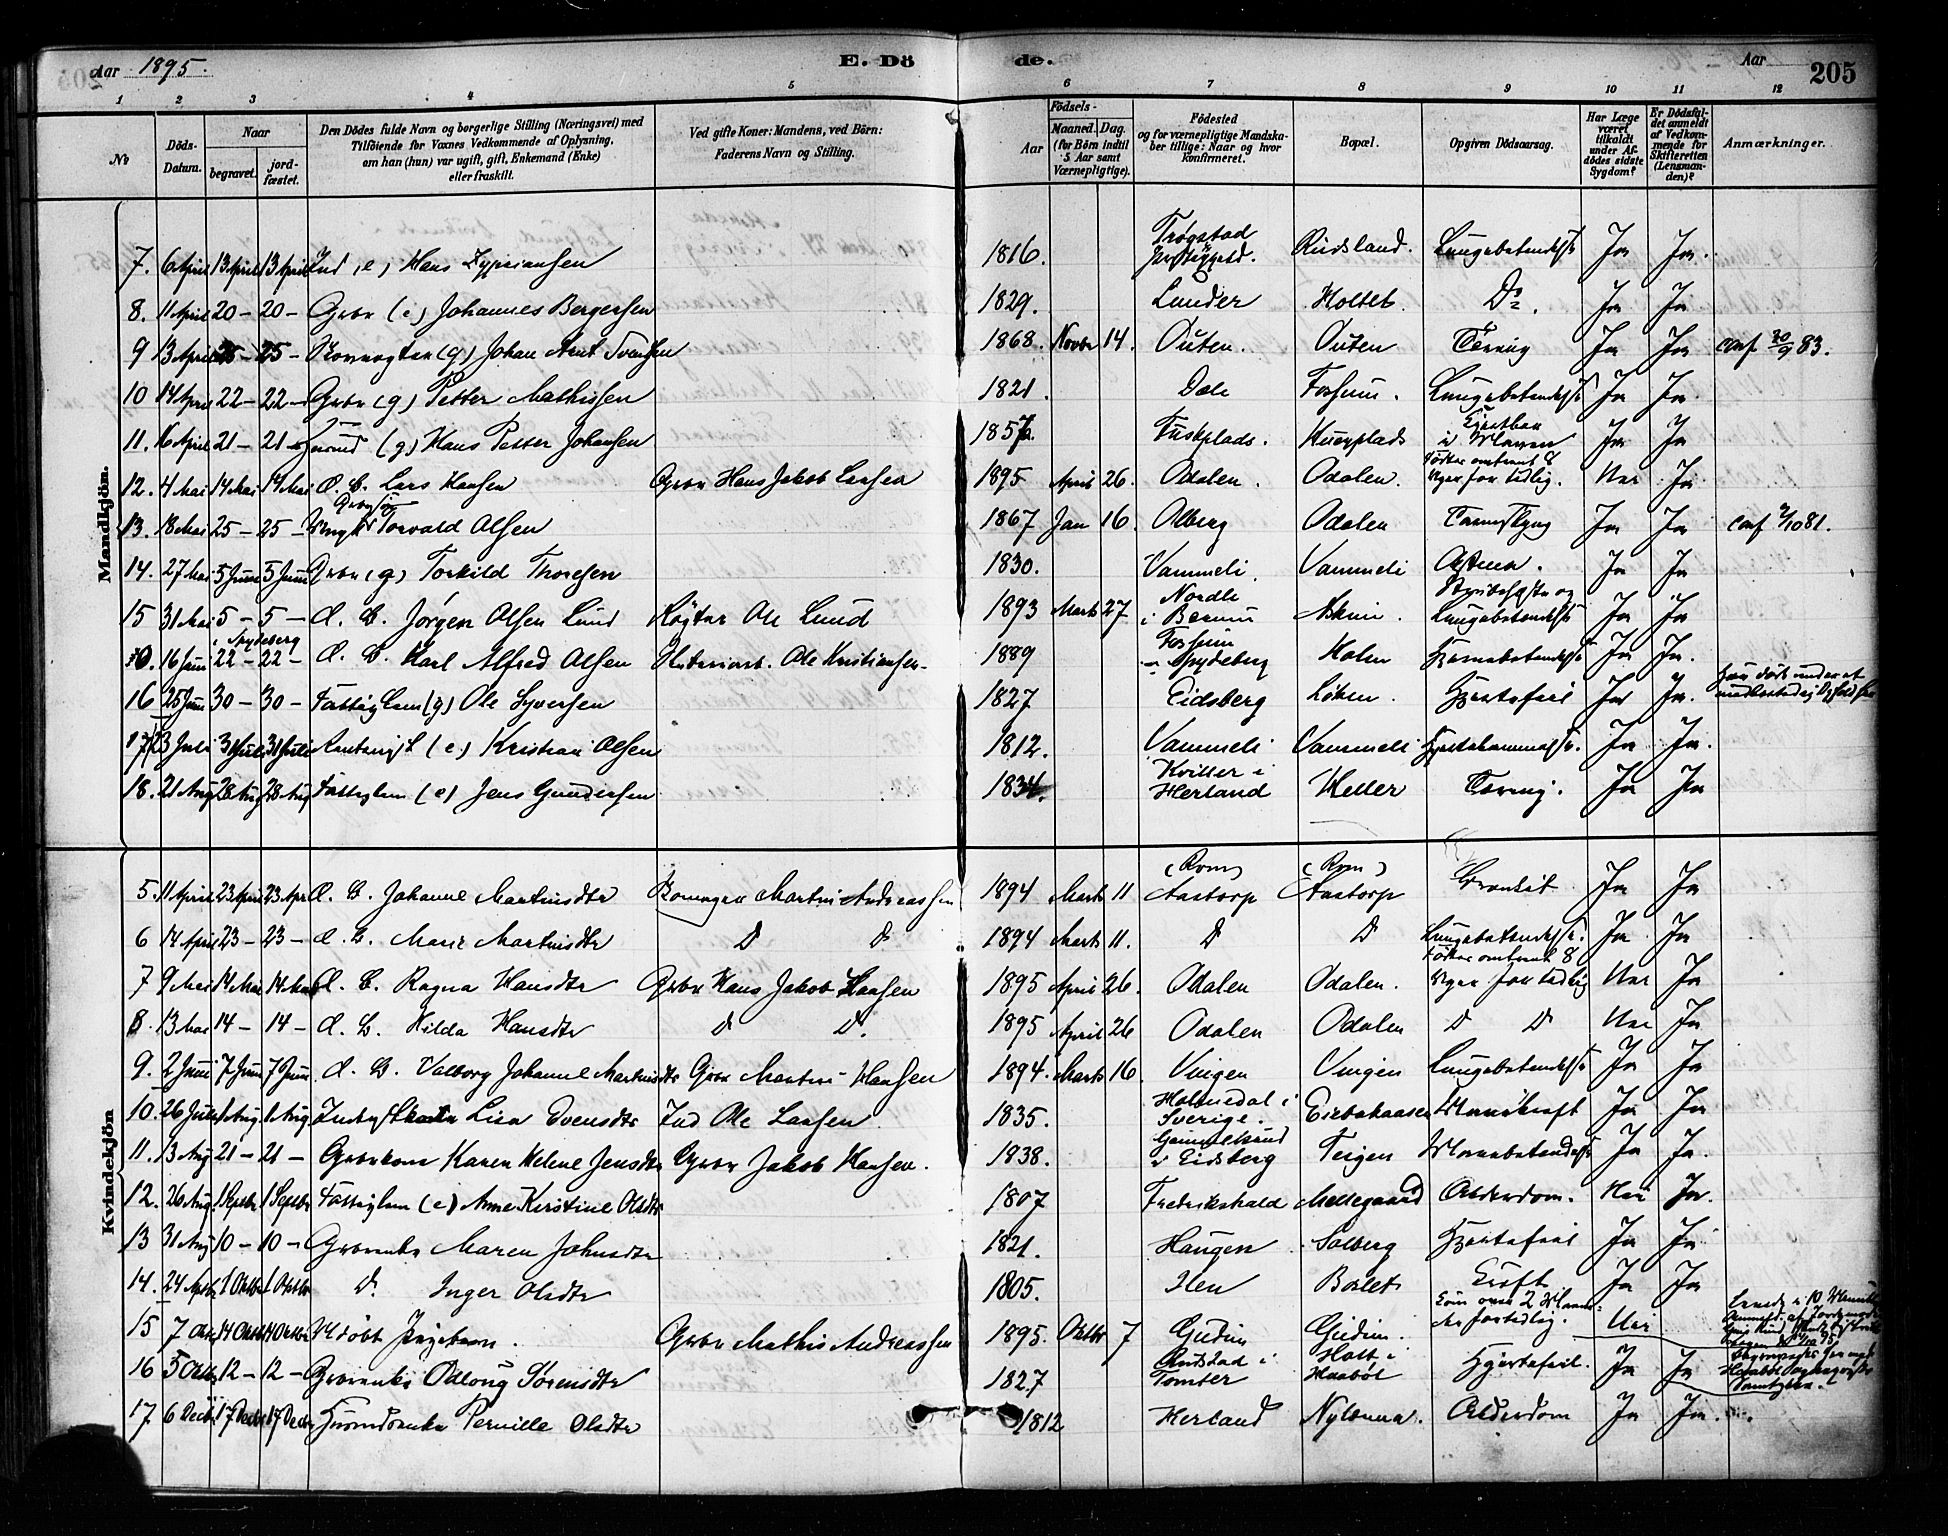 Aar 1895. E. Dö de. Aar 205
1 2 3 4 5 6 7 8 9 10 11 12
No
Döds-Datum.
Naar begravet. jord-fæstet.
Den Dödes fulde Navn og borgerlige Stilling (Næringsvei) med Tilföiende for Voxnes Vedkommende af Oplysning, om han (hun) var ugift, gift, Enkemand (Enke) eller fraskilt.
Ved gifte Koner: Mandens, ved Börn: Faderens Navn og Stilling.
Födsels-
Aar Maaned. Dag. (for Börn indtil 5 Aar samt Værnepligtige).
Födested og for værnepligtige Mandskaber tillige: Naar og hvor konfirmeret.
Bopæl.
Opgiven Dödsaarsag.
Har Læge været tilkaldt under Afdödes sidste Sygdom?
Er Dödsfaldet anmeldt af Vedkommende for Skifteretten (Lensmanden)?
Anmærkninger.
Mandkjön.
7. 6 April 13 April 13 April Ind (e) Hans Zypriansen 1816. Trøgstad Præstegjeld. Rudsland. Lungebetændelse Ja Ja.
8. 11 April 20 – 20 – Gbr (e) Johannes Bergersen 1829. Lunder Holtet Do. Ja Ja
9 13 April 25 – 25 – (g) Johan Arnt Svensen 1868. Novbr 14. Outen. Outen Tæring Ja Ja conf 30/9 83.
10 14 April 22 – 22 – Gbr (g) Petter Mathisen 1821. Dale Fossum. Lungebetændelse Ja Ja.
11. 16 April 21 – 21 – (g) Hans Petter Johansen 1857. Ja Ja
12. 4 Mai 14 Mai 14 Mai d. B. Lars Hansen Gbr Hans Jakob Larsen 1895 April 26. Odalen. Odalen. Födt omtrent 8 Uger for tidlig. Nei Ja
13. 18 Mai 25 – 25 – Torvald Olsen 1867 Jan 16. Olberg Odalen Ja Ja conf 2/10 81.
14. 27 Mai 5 Juni 5 Juni Gbr (g) Torkild Thoresen 1830. Vammeli Vammeli Astma. Ja Ja
15 31 Mai 5 – 5 – d. B. Jørgen Olsen Lund Røgter Ole Lund 1893 Marts 27 Nordli i Bærum Askim Strubehoste og Lungebetændelse Ja Ja
0. 16 Juni i Spydeberg 22 – 22 – d. B. Karl Alfred Olsen Ole Kristiansen 1889 Fossum Spydeberg Holm Hjernebetændelse Ja Ja.
16 25 Juni 30 – 30 – Fattiglem (g) Ole Syversen 1827 Eidsberg Løken. Hjertefeil Ja Ja.
17 23 Juli 31 Juli 31 Juli (e) Kristian Olsen 1812. Vammeli Vammeli Ja Ja.
18. 21 Aug 28 Aug 28 Aug Fattiglem (e) Jens Gundersen 1834. Kviller i Herland Heller Tæring. Ja Ja
Kvindekjön
5. 11 April 23 April 23 Apr d. B. Johanne Martinsdtr Martin Andreassen 1894 Marts 11 (Rom) Aastorp (Rom) Aastorp Bronkit Ja Ja
6 14 April 23 – 23 – d. B. Marie Martinsdtr D D 1894 Marts 11. D D Lungebetændelse. Ja Ja
7 9 Mai 14 Mai 14 Mai d. B. Ragna Hansdtr Gbr Hans Jakob Larsen 1895 April 26. Odalen Odalen. Födt omtrent 8 Uger for tidlig Nei Ja
8. 13 Mai 14 – 14 – d. B. Hilda Hansdtr D D. 1895 April 26 Odalen Odalen D D Nei Ja
9. 2 Juni 7 Juni 7 Juni d. B. Valborg Johanne Martinsdtr Gbr Martin Hansen 1894. Marts 16. Vingen Vingen Lungebetændelse Ja Ja
10. 26 Juli 1 Aug 1 Aug Lisa Svensdtr Ind Ole Larsen 1835. Holmedal i Sverige. Mavekræft Ja Ja
11. 13 Aug 21 – 21 – Gbrkone Karen Helene Jensdtr Gbr Jakob Hansen. 1838. Gammelsrud i Eidsberg Teigen Mavebetændelse Ja Ja.
12. 26 Aug 1 Septbr 1 Septbr Fattiglem (e) Anne Kirstine Olsdtr 1807 Frederikshald Mellegaard Alderdom. Nei Ja.
13 31 Aug 10 – 10 – Gbrenke Maren Johnsdtr 1821. Haugen Solberg Hjertefeil Ja Ja
14. 24 Septbr 1 Oktbr 1 Oktbr D. Inger Olsdtr 1805. Hen Kræft Ja Ja
15 7 Oktbr 14 Oktbr 14 Oktbr Udöbt Pigebarn. Gbr Mathis Andreassen 1895. Oktbr 7 Gudim Gudim. for tidlig. Nei
16 5 Oktbr 12 – 12 – Gbrenke Odloug Sørensdtr 1827 i Tomter Holt i Haabøl Hjertefeil. Ja Ja
17 6 Decbr 17 Decbr 17 Decbr Pernille Olsdtr 1812 Herland Alderdom Ja Ja.